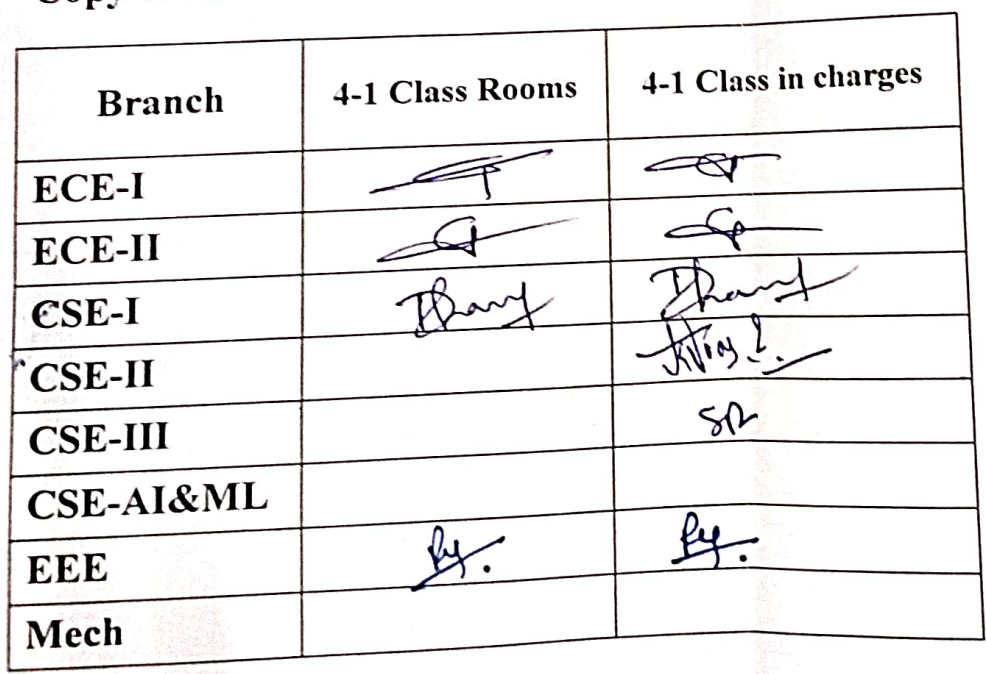 Copy
Branch 4-1 Class Rooms 4-1 Class in charges
ECE-I
ECE-II
CSE-I
CSE-II
CSE-III SR
CSE-AI&ML
EEE
Mech